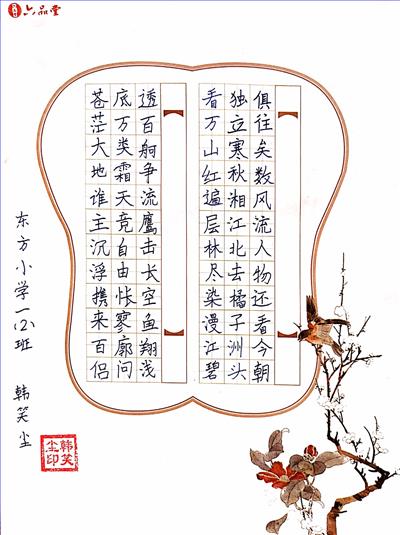 六品堂
俱往矣数风流人物还看今朝
独立寒秋湘江北去橘子洲头
看万山红遍层林尽染漫江碧
透百舸争流鹰击长空鱼翔浅
底万类霜天竞自由怅寥廓问
苍茫大地谁主沉浮携来百侣
东方小学一(2)班 韩笑尘
韩笑
尘印